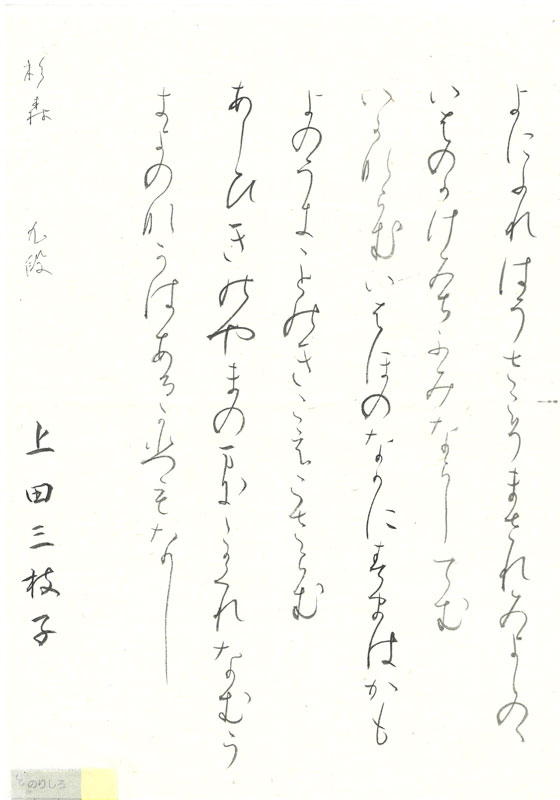 よにふれはうさこそまされみよしのゝ
いはのかけみちふみならしてむ
いかならむいはほのなかにすまはかも
よのうきことのきこえこさらむ
あしひきのやまのまに〱かくれなむう
きよのなかはあるかひもなし
杉森 九段 上田三枝子
のりしろ